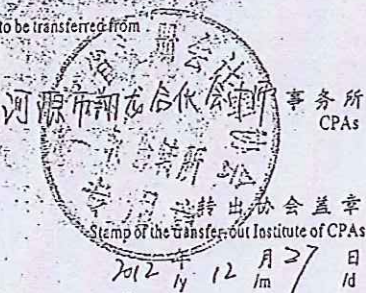 to be transferred from
河源市翔龙合伙会计师事务所
CPAs
转出协会盖章
Stamp of the transfer-out Institute of CPAs
2012年 12月 27日
/y /m /d